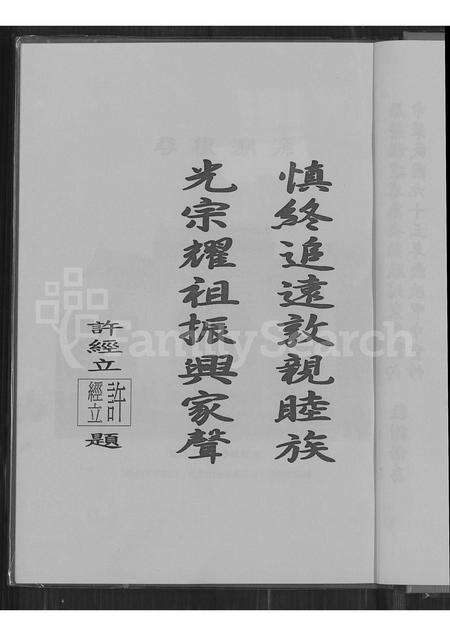 慎終追遠敦親睦族
光宗耀祖振興家聲
許經立
許經立
題
FamilySearch